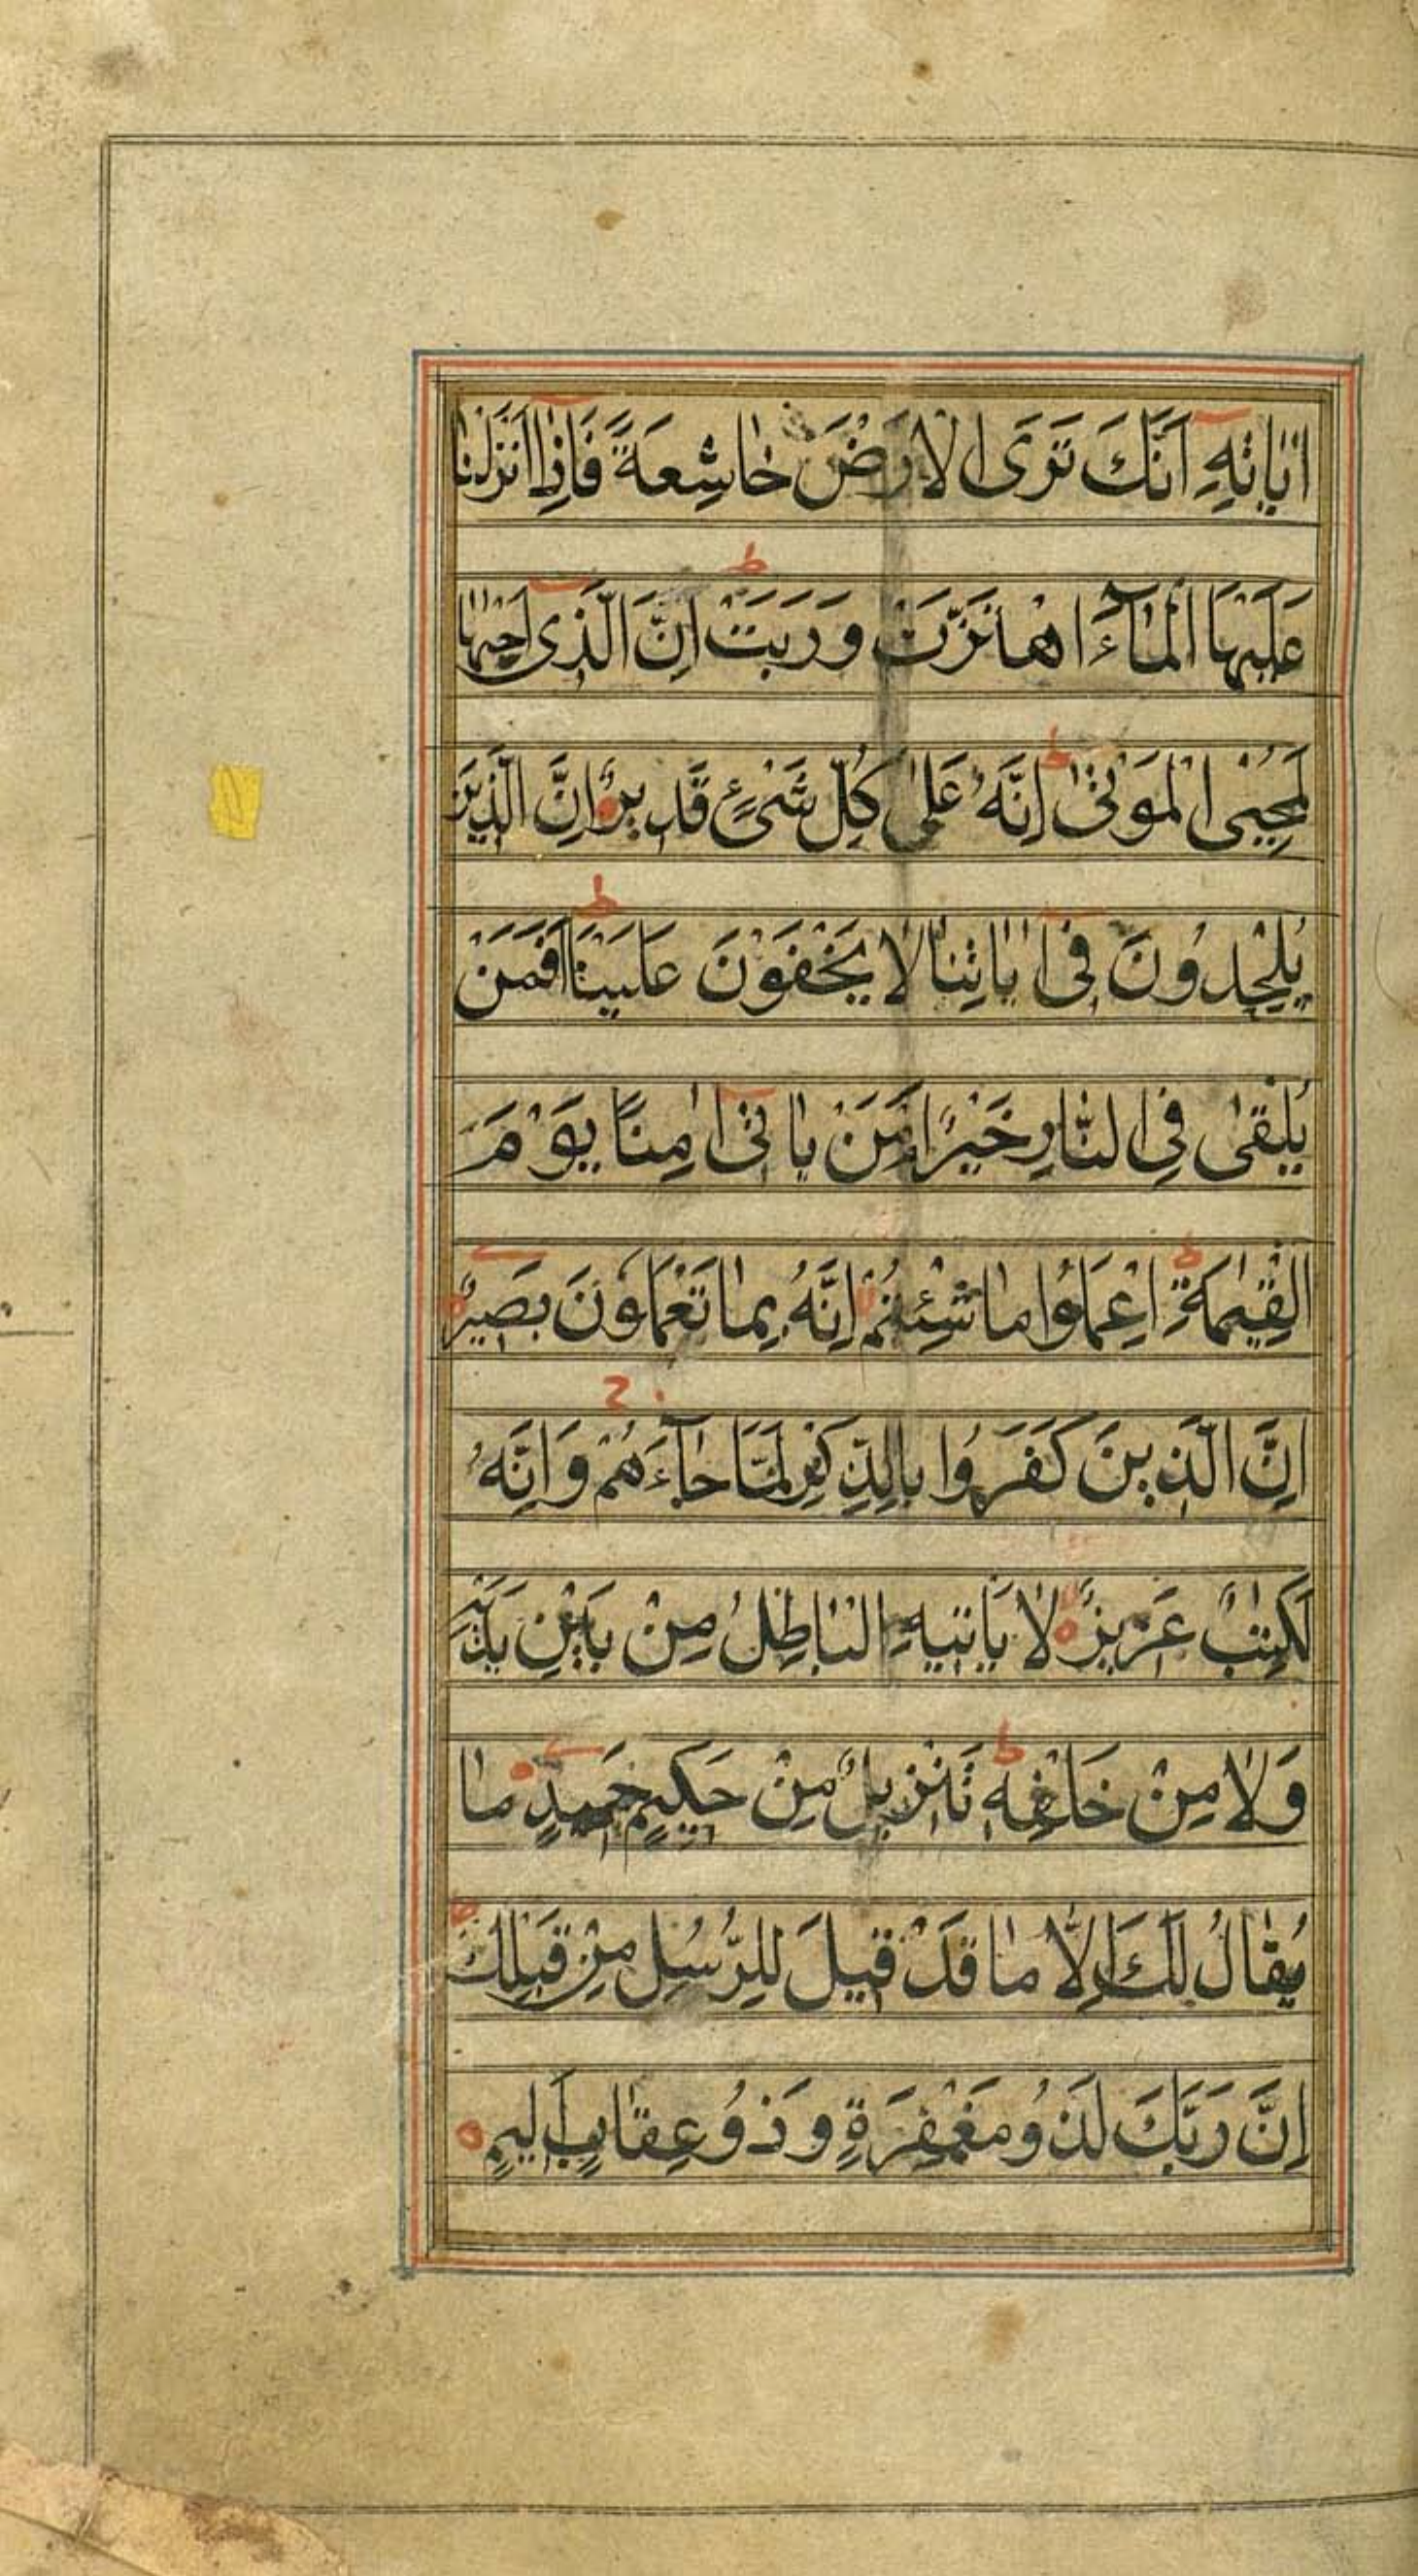 اٰيَاتِهٖ اَنَّكَ تَرَى الْاَرْضَ خَاشِعَةً فَاِذَا اَنْزَلْنَا
عَلَيْهَا الْمَآءَ اهْتَزَّتْ وَرَبَتْ ط اِنَّ الَّذِى اَحْيٰهَا
لَمُحْيِى الْمَوْتٰى ط اِنَّهُ عَلٰى كُلِّ شَىْءٍ قَدِيرٌ اِنَّ الَّذِينَ
يُلْحِدُونَ فِى اٰيَاتِنَا لَا يَخْفَوْنَ عَلَيْنَا ط اَفَمَنْ
يُلْقٰى فِى النَّارِ خَيْرٌ اَمْ مَنْ يَاْتِى اٰمِنًا يَوْمَ
الْقِيٰمَةِ ط اِعْمَلُوا مَا شِئْتُمْ لا اِنَّهُ بِمَا تَعْمَلُونَ بَصِيرٌ
اِنَّ الَّذِينَ كَفَرُوا بِالذِّكْرِ لَمَّا جَآءَهُمْ ج وَاِنَّهُ
لَكِتٰبٌ عَزِيزٌ لا لَا يَاْتِيهِ الْبَاطِلُ مِنْ بَيْنِ يَدَيْهِ
وَلَا مِنْ خَلْفِهٖ ط تَنْزِيلٌ مِنْ حَكِيمٍ حَمِيدٍ مَا
يُقَالُ لَكَ اِلَّا مَا قَدْ قِيلَ لِلرُّسُلِ مِنْ قَبْلِكَ ط
اِنَّ رَبَّكَ لَذُو مَغْفِرَةٍ وَذُو عِقَابٍ اَلِيمٍ